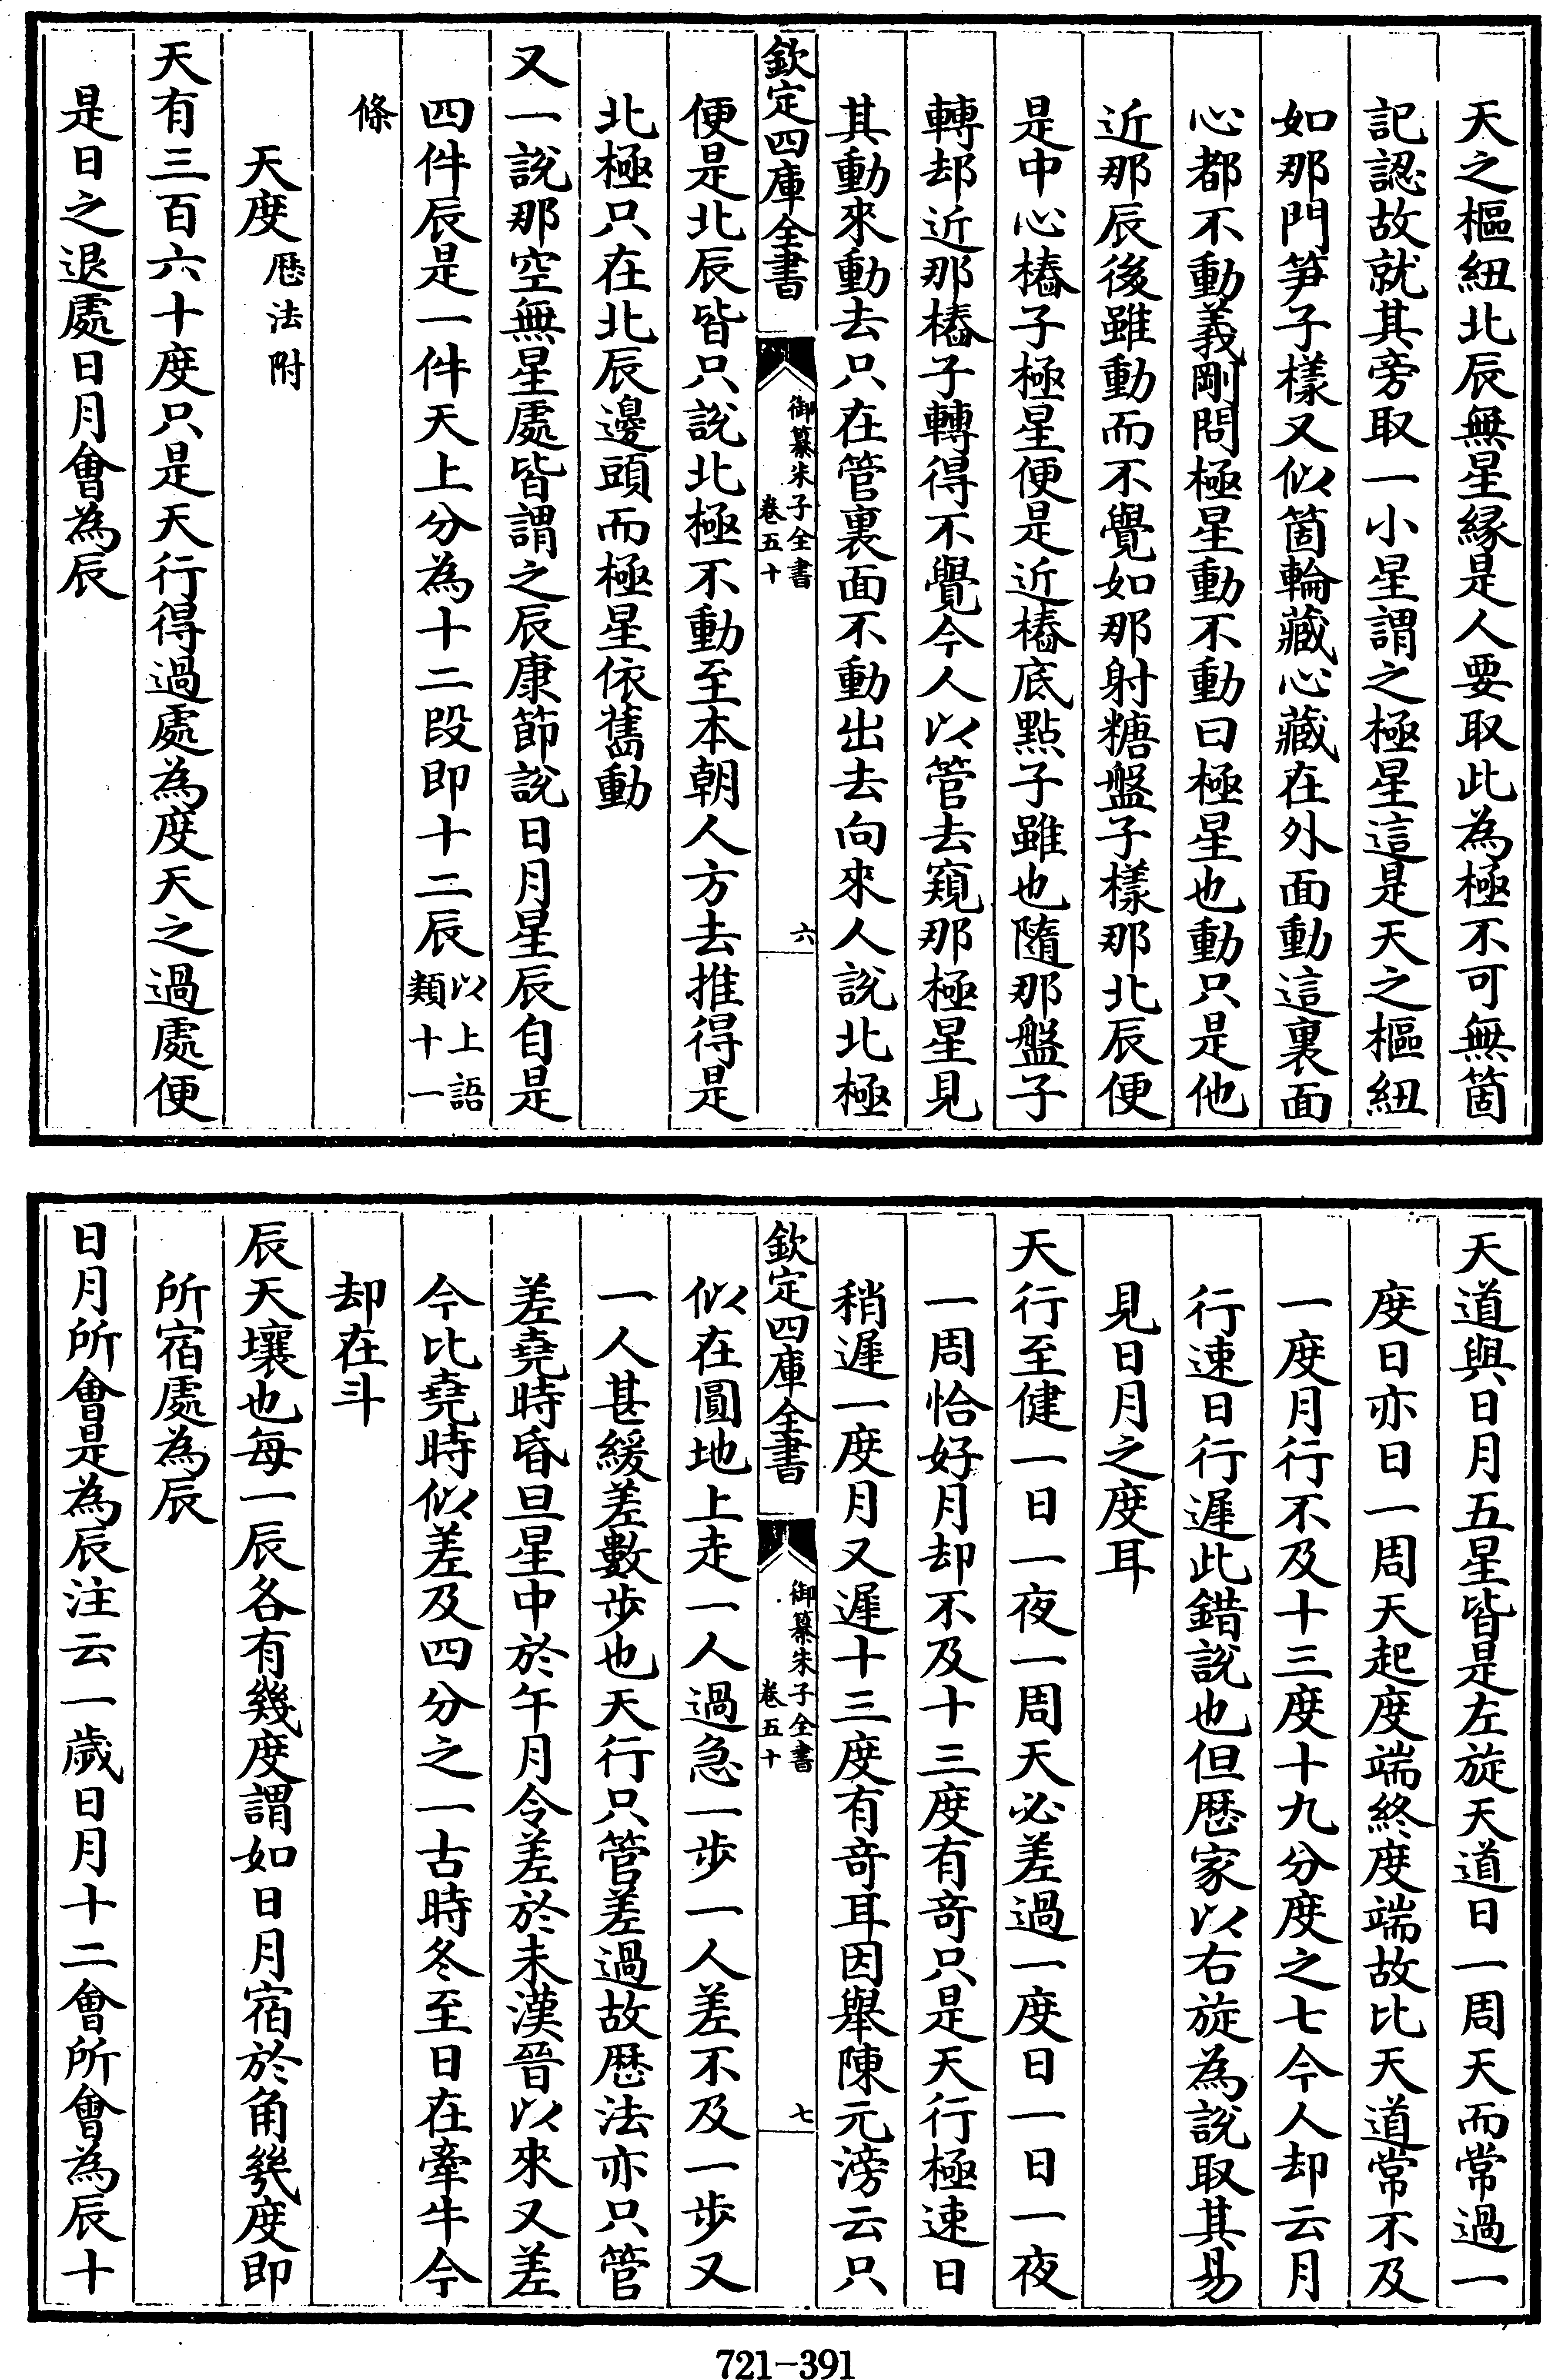 天之樞紐北辰無星緣是人要取此為極不可無箇
記認故就其旁取一小星謂之極星這是天之樞紐
如那門笋子樣又似箇輪藏心藏在外面動這裏面
心都不動義剛問極星動不動曰極星也動只是他
近那辰後雖動而不覺如那射糖盤子樣那北辰便
是中心樁子極星便是近樁底點子雖也隨那盤子
轉却近那樁子轉得不覺今人以管去窺那極星見
其動來動去只在管裏面不動出去向來人說北極
欽定四庫全書
御纂朱子全書
卷五十
六
便是北辰皆只說北極不動至本朝人方去推得是
北極只在北辰邊頭而極星依舊動
又一說那空無星處皆謂之辰康節說日月星辰自是
四件辰是一件天上分為十二段即十二辰以上語
類十一
條
天度歴法附
天有三百六十度只是天行得過處為度天之過處便
是日之退處日月會為辰
天道與日月五星皆是左旋天道日一周天而常過一
度日亦日一周天起度端終度端故比天道常不及
一度月行不及十三度十九分度之七今人却云月
行速日行遲此錯說也但歴家以右旋為說取其易
見日月之度耳
天行至健一日一夜一周天必差過一度日一日一夜
一周恰好月却不及十三度有奇只是天行極速日
稍遲一度月又遲十三度有奇耳因舉陳元滂云只
欽定四庫全書
御纂朱子全書
卷五十
七
似在圓地上走一人過急一步一人差不及一步又
一人甚緩差數步也天行只管差過故歴法亦只管
差堯時昏旦星中於午月令差於未漢晉以來又差
今比堯時似差及四分之一古時冬至日在牽牛今
却在斗
辰天壤也每一辰各有幾度謂如日月宿於角幾度即
所宿處為辰
日月所會是為辰注云一歲日月十二會所會為辰十
721-391